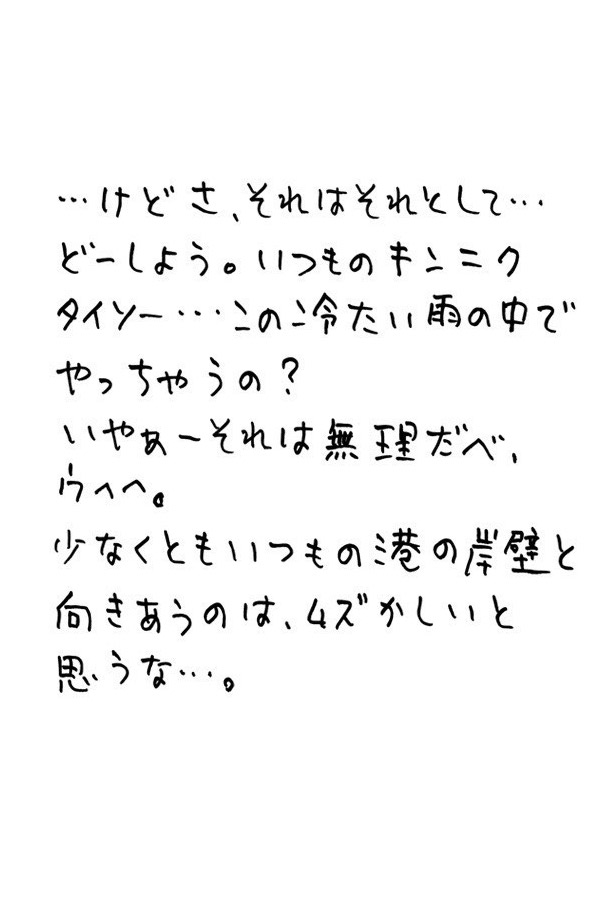 …けどさ、それはそれとして…
どーしよう。いつものキンニク
タイソー…この冷たい雨の中で
やっちゃうの？
いやぁーそれは無理だべ、
ウヘヘ。
少なくともいつもの港の岸壁と
向きあうのは、ムズかしいと
思うな…。